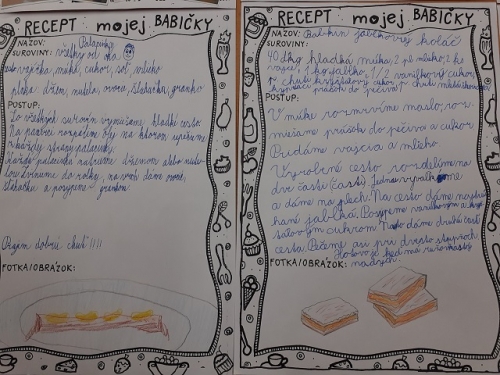 RECEPT mojej BABIČKY
NÁZOV: Palacinky
SUROVINY: všetky od oka
cesto: vajíčka, múka, cukor, soľ, mlieko
plnka: džem, nutela, ovocie, šľahačka, granko
POSTUP:
Zo všetkých surovín vymiešame hladké cesto.
Na panvici rozpálim olej na ktorom upečieme
z každej strany palacinky.
Každú palacinku natrieme džemom alebo nute-
lou zvinieme do rolky, na vrch dáme ovocie,
šľahačku a posypeme grankom.
Prajem dobrú chuť!!!!
FOTKA/OBRÁZOK:
RECEPT mojej BABIČKY
NÁZOV: Babkin jablkový koláč
SUROVINY:
hladká múka, 2 pl mlieko, 1 ks
vajce, 1 kg jabĺk, 1/2 vanilkový cukor,
prášok do pečiva
POSTUP:
V múke rozmrvíme maslo, roz-
miešame prášok do pečiva a cukor
Pridáme vajcia a mlieko
Vyrobené cesto rozdelíme na
dve časti (časti). Jednu vyvaľkáme
a dáme na plech. Na cesto dáme nastrú-
hané jablká. Posypeme vanilkovým a kryš-
tálovým cukrom. Na to dáme druhú časť
cesta. Pečieme asi pri dvesto stupňoch
Hotovo je keď má ružovkastý
FOTKA/OBRÁZOK: